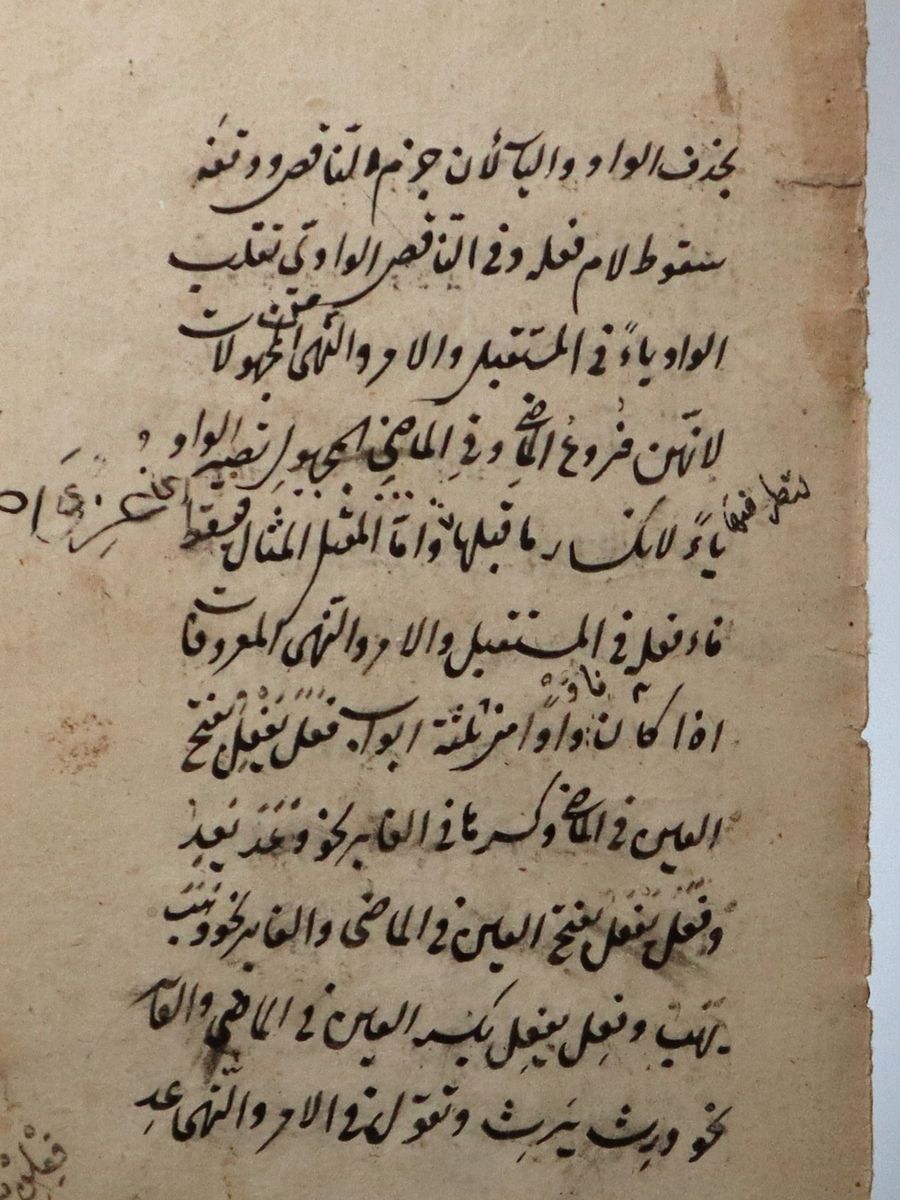 بحذف الواو والياء لأن جزم الناقص ووقفه
سقوط لام فعله وفي الناقص الواوي تقلب
الواو ياءً في المستقبل والامر والنهي المجهولات
لانّهن فروع الماضي وفي الماضي المجهول تصير الواو
ياءً لانكسار ما قبلها وامّا المعتل المثال فتسقط
فاء فعله في المستقبل والامر والنهي المعروفات
اذا كان واوًا من ثلثة ابواب فَعَلَ يَفْعِلُ بفتح
العين في الماضي وكسرها في الغابر نحو وَعَدَ يَعِدُ
وفَعَلَ يَفْعَلُ بفتح العين في الماضي والغابر نحو وَهَبَ
يَهَبُ وفَعِلَ يفعِل بكسر العين في الماضي والغابر
نحو ورِث يَرِث وتقول في الامر والنّهى عِدِ